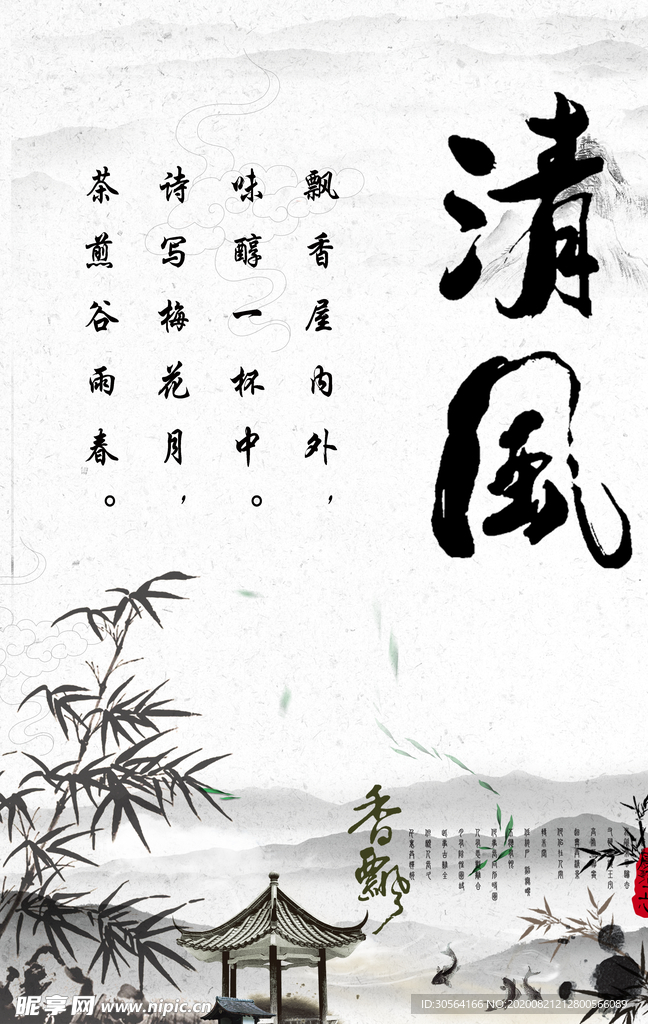 清风
飘香屋内外，
味醇一杯中。
诗写梅花月，
茶煎谷雨春。
香飘
昵享网 www.nipic.cn
ID:30564166 NO:20200821212800566089